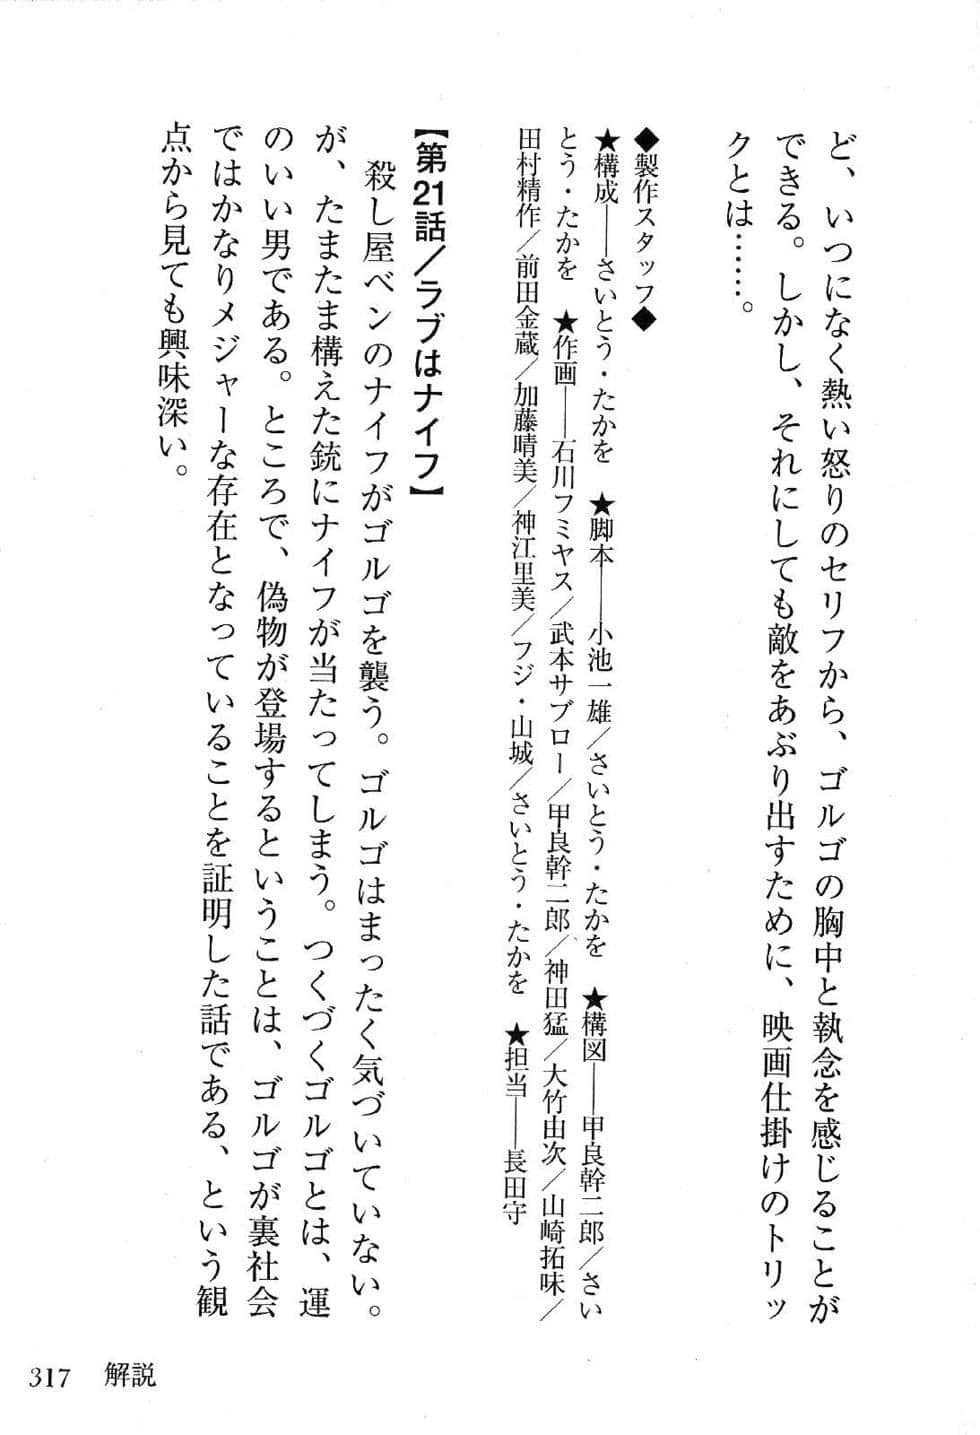 ど、いつになく熱い怒りのセリフから、ゴルゴの胸中と執念を感じることが
できる。しかし、それにしても敵をあぶり出すために、映画仕掛けのトリッ
クとは……。
◆製作スタッフ◆
★構成――さいとう・たかを ★脚本――小池一雄／さいとう・たかを ★構図――甲良幹二郎／さい
とう・たかを ★作画――石川フミヤス／武本サブロー／甲良幹二郎／神田猛／大竹由次／山崎拓味／
田村精作／前田金蔵／加藤晴美／神江里美／フジ・山城／さいとう・たかを ★担当――長田守
【第21話／ラブはナイフ】
殺し屋ベンのナイフがゴルゴを襲う。ゴルゴはまったく気づいていない。
が、たまたま構えた銃にナイフが当たってしまう。つくづくゴルゴとは、運
のいい男である。ところで、偽物が登場するということは、ゴルゴが裏社会
ではかなりメジャーな存在となっていることを証明した話である、という観
点から見ても興味深い。
317 解説